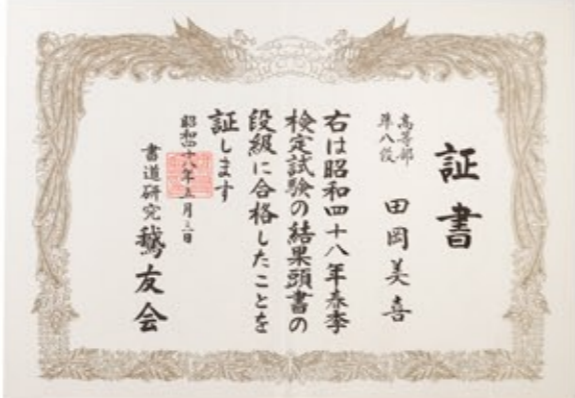 証書
高等部
準八段
田岡美喜
右は昭和四十八年春季
検定試験の結果頭書の
段級に合格したことを
証します
昭和四十八年五月三日
書道研究 鵞友会